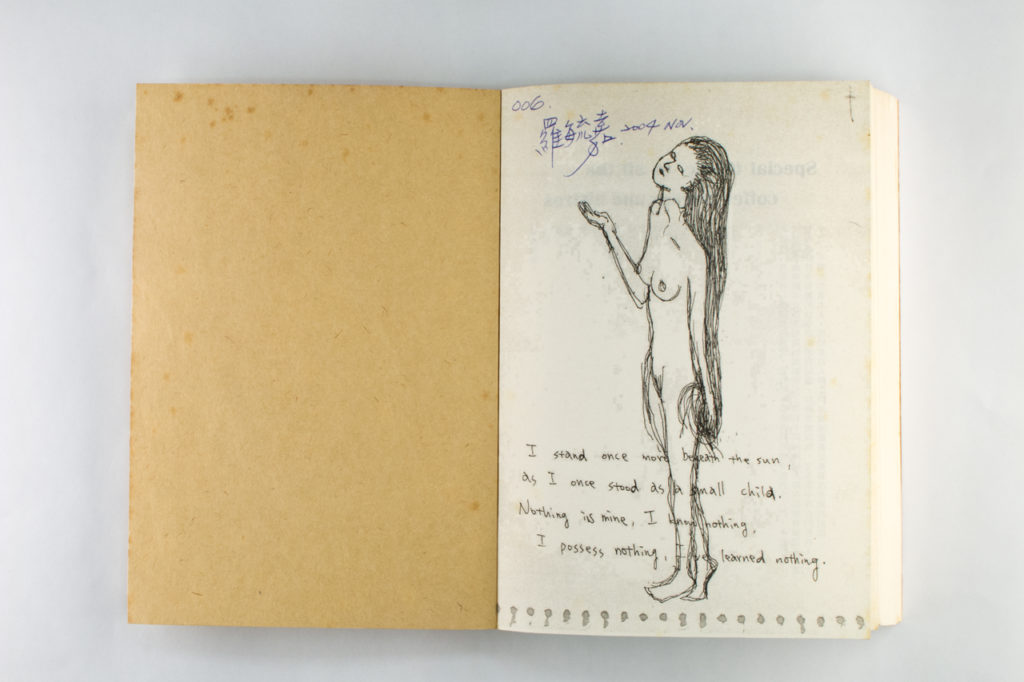 006.
羅毓嘉 2004 NOV.
I stand once more beneath the sun,
as I once stood as a small child.
Nothing is mine, I know nothing,
I possess nothing, I've learned nothing.